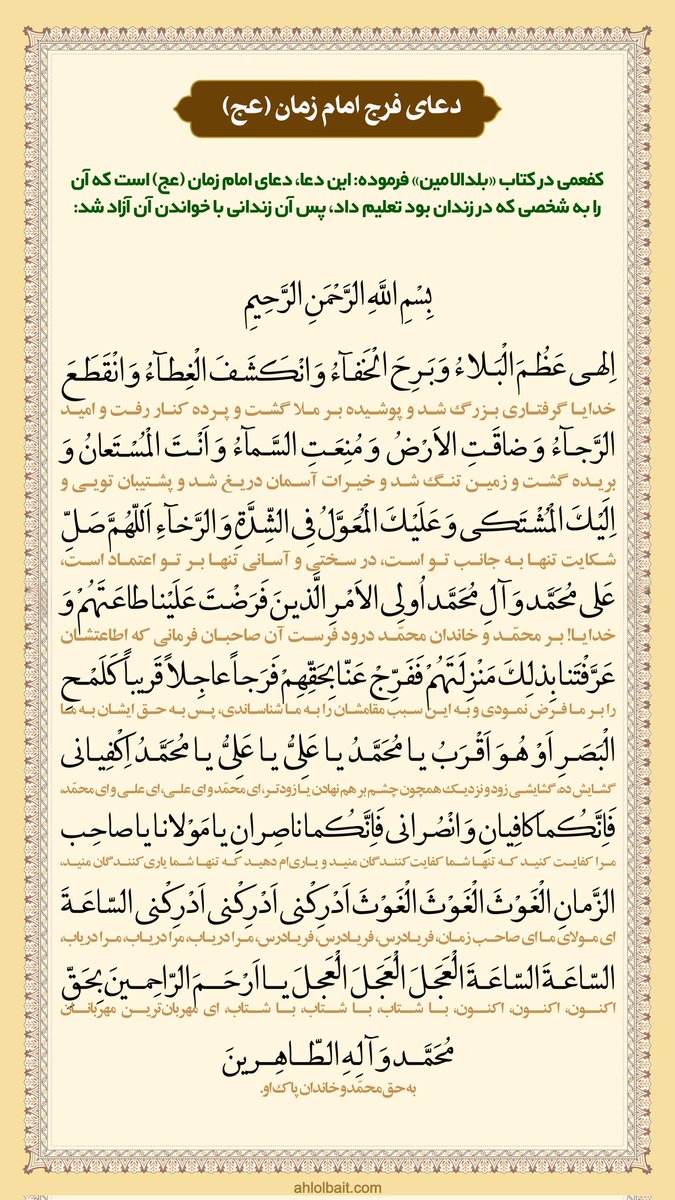 دعای فرج امام زمان (عج)
کفعمی در کتاب «بلدالامین» فرموده: این دعا، دعای امام زمان (عج) است که آن
را به شخصی که در زندان بود تعلیم داد، پس آن زندانی با خواندن آن آزاد شد:
بِسْمِ اللَّهِ الرَّحْمَنِ الرَّحِیمِ
اِلهی عَظُمَ الْبَلاءُ وَ بَرِحَ الْخَفآءُ وَ انْکَشَفَ الْغِطآءُ وَ انْقَطَعَ
خدایا گرفتاری بزرگ شد و پوشیده بر ملا گشت و پرده کنار رفت و امید
الرَّجآءُ وَ ضاقَتِ الاَرْضُ وَ مُنِعَتِ السَّمآءُ وَ اَنْتَ الْمُسْتَعانُ وَ
بریده گشت و زمین تنگ شد و خیرات آسمان دریغ شد و پشتیبان تویی و
اِلَیْكَ الْمُشْتَکی وَ عَلَیْكَ الْمُعَوَّلُ فِی الشِّدَّةِ وَ الرَّخآءِ اَللّهُمَّ صَلِّ
شکایت تنها به جانب تو است، در سختی و آسانی تنها بر تو اعتماد است،
عَلی مُحَمَّد وَ آلِ مُحَمَّد اُولِی الاَمْرِ الَّذینَ فَرَضْتَ عَلَیْنا طاعَتَهُمْ وَ
خدایا! بر محمّد و خاندان محمّد درود فرست آن صاحبان فرمانی که اطاعتشان
عَرَّفْتَنا بِذلِكَ مَنْزِلَتَهُمْ فَفَرِّجْ عَنّا بِحَقِّهِمْ فَرَجاً عاجِلاً قَریباً کَلَمْحِ
را بر ما فرض نمودی و به این سبب مقامشان را به ما شناساندی، پس به حق ایشان به ما
الْبَصَرِ اَوْ هُوَ اَقْرَبُ یا مُحَمَّدُ یا عَلِیُّ یا عَلِیُّ یا مُحَمَّدُ اِکْفِیانی
گشایش ده، گشایشی زود و نزدیک همچون چشم بر هم نهادن یا زودتر، ای محمّد و ای علی، ای علی و ای محمّد،
فَاِنَّکُما کافِیانِ وَ انْصُرانی فَاِنَّکُما ناصِرانِ یا مَوْلانا یا صاحِب
مرا کفایت کنید که تنها شما کفایت‌کنندگان منید و یاری‌ام دهید که تنها شما یاری کنندگان منید،
الزَّمانِ الْغَوْثَ الْغَوْثَ الْغَوْثَ اَدْرِکْنی اَدْرِکْنی اَدْرِکْنی السّاعَةَ
ای مولای ما ای صاحب زمان، فریادرس، فریادرس، فریادرس، مرا دریاب، مرا دریاب، مرا دریاب،
السّاعَةَ السّاعَةَ الْعَجَلَ الْعَجَلَ الْعَجَلَ یا اَرْحَمَ الرّاحِمینَ بِحَقِّ
اکنون، اکنون، اکنون، با شتاب، با شتاب، با شتاب، ای مهربان‌ترین مهربانان
مُحَمَّد وَ آلِهِ الطّاهِرینَ
به حق محمّد و خاندان پاک او.
ahlolbait.com